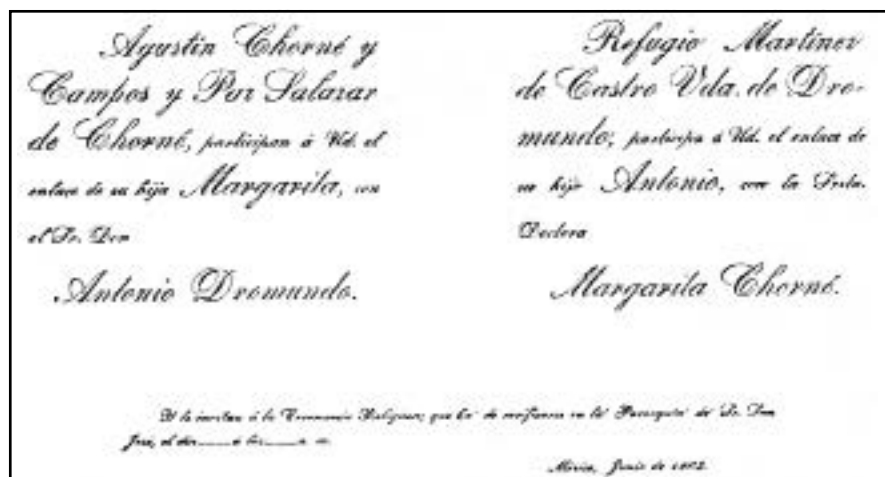 Agustin Chorné y
Campos y Paz Salazar
de Chorné, participan á Ud. el
enlace de su hija Margarita, con
el Sr. Don
Antonio Dromundo.
Refugio Martinez
de Castro Vda. de Dro-
mundo; participa á Ud. el enlace de
su hijo Antonio, con la Srita.
Doctora
Margarita Chorné.
Y le invitan á la Ceremonia Religiosa; que ha de verificarse en la Parroquia de Sr. San
José, el día á las
México, Junio de